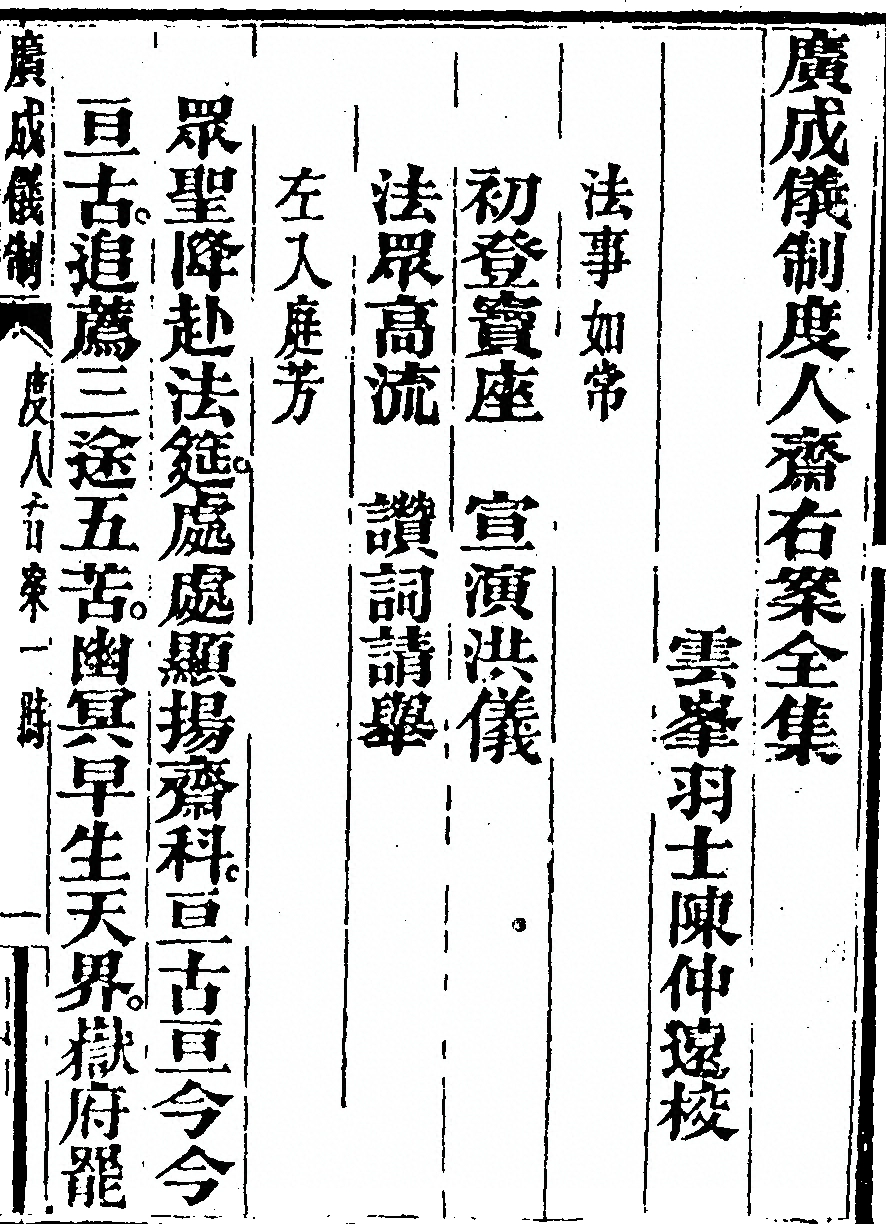 廣成儀制度人齋右案全集
雲峯羽士陳仲遠校
法事如常
初登寶座　宣演洪儀
法眾高流　讚詞請舉
左入庭芳
眾聖降赴法筵。處處顯揚齋科。亘古亘今今
亘古。追薦三途五苦。幽冥早生天界。嶽府罷
廣成儀制　度人右案一時　一